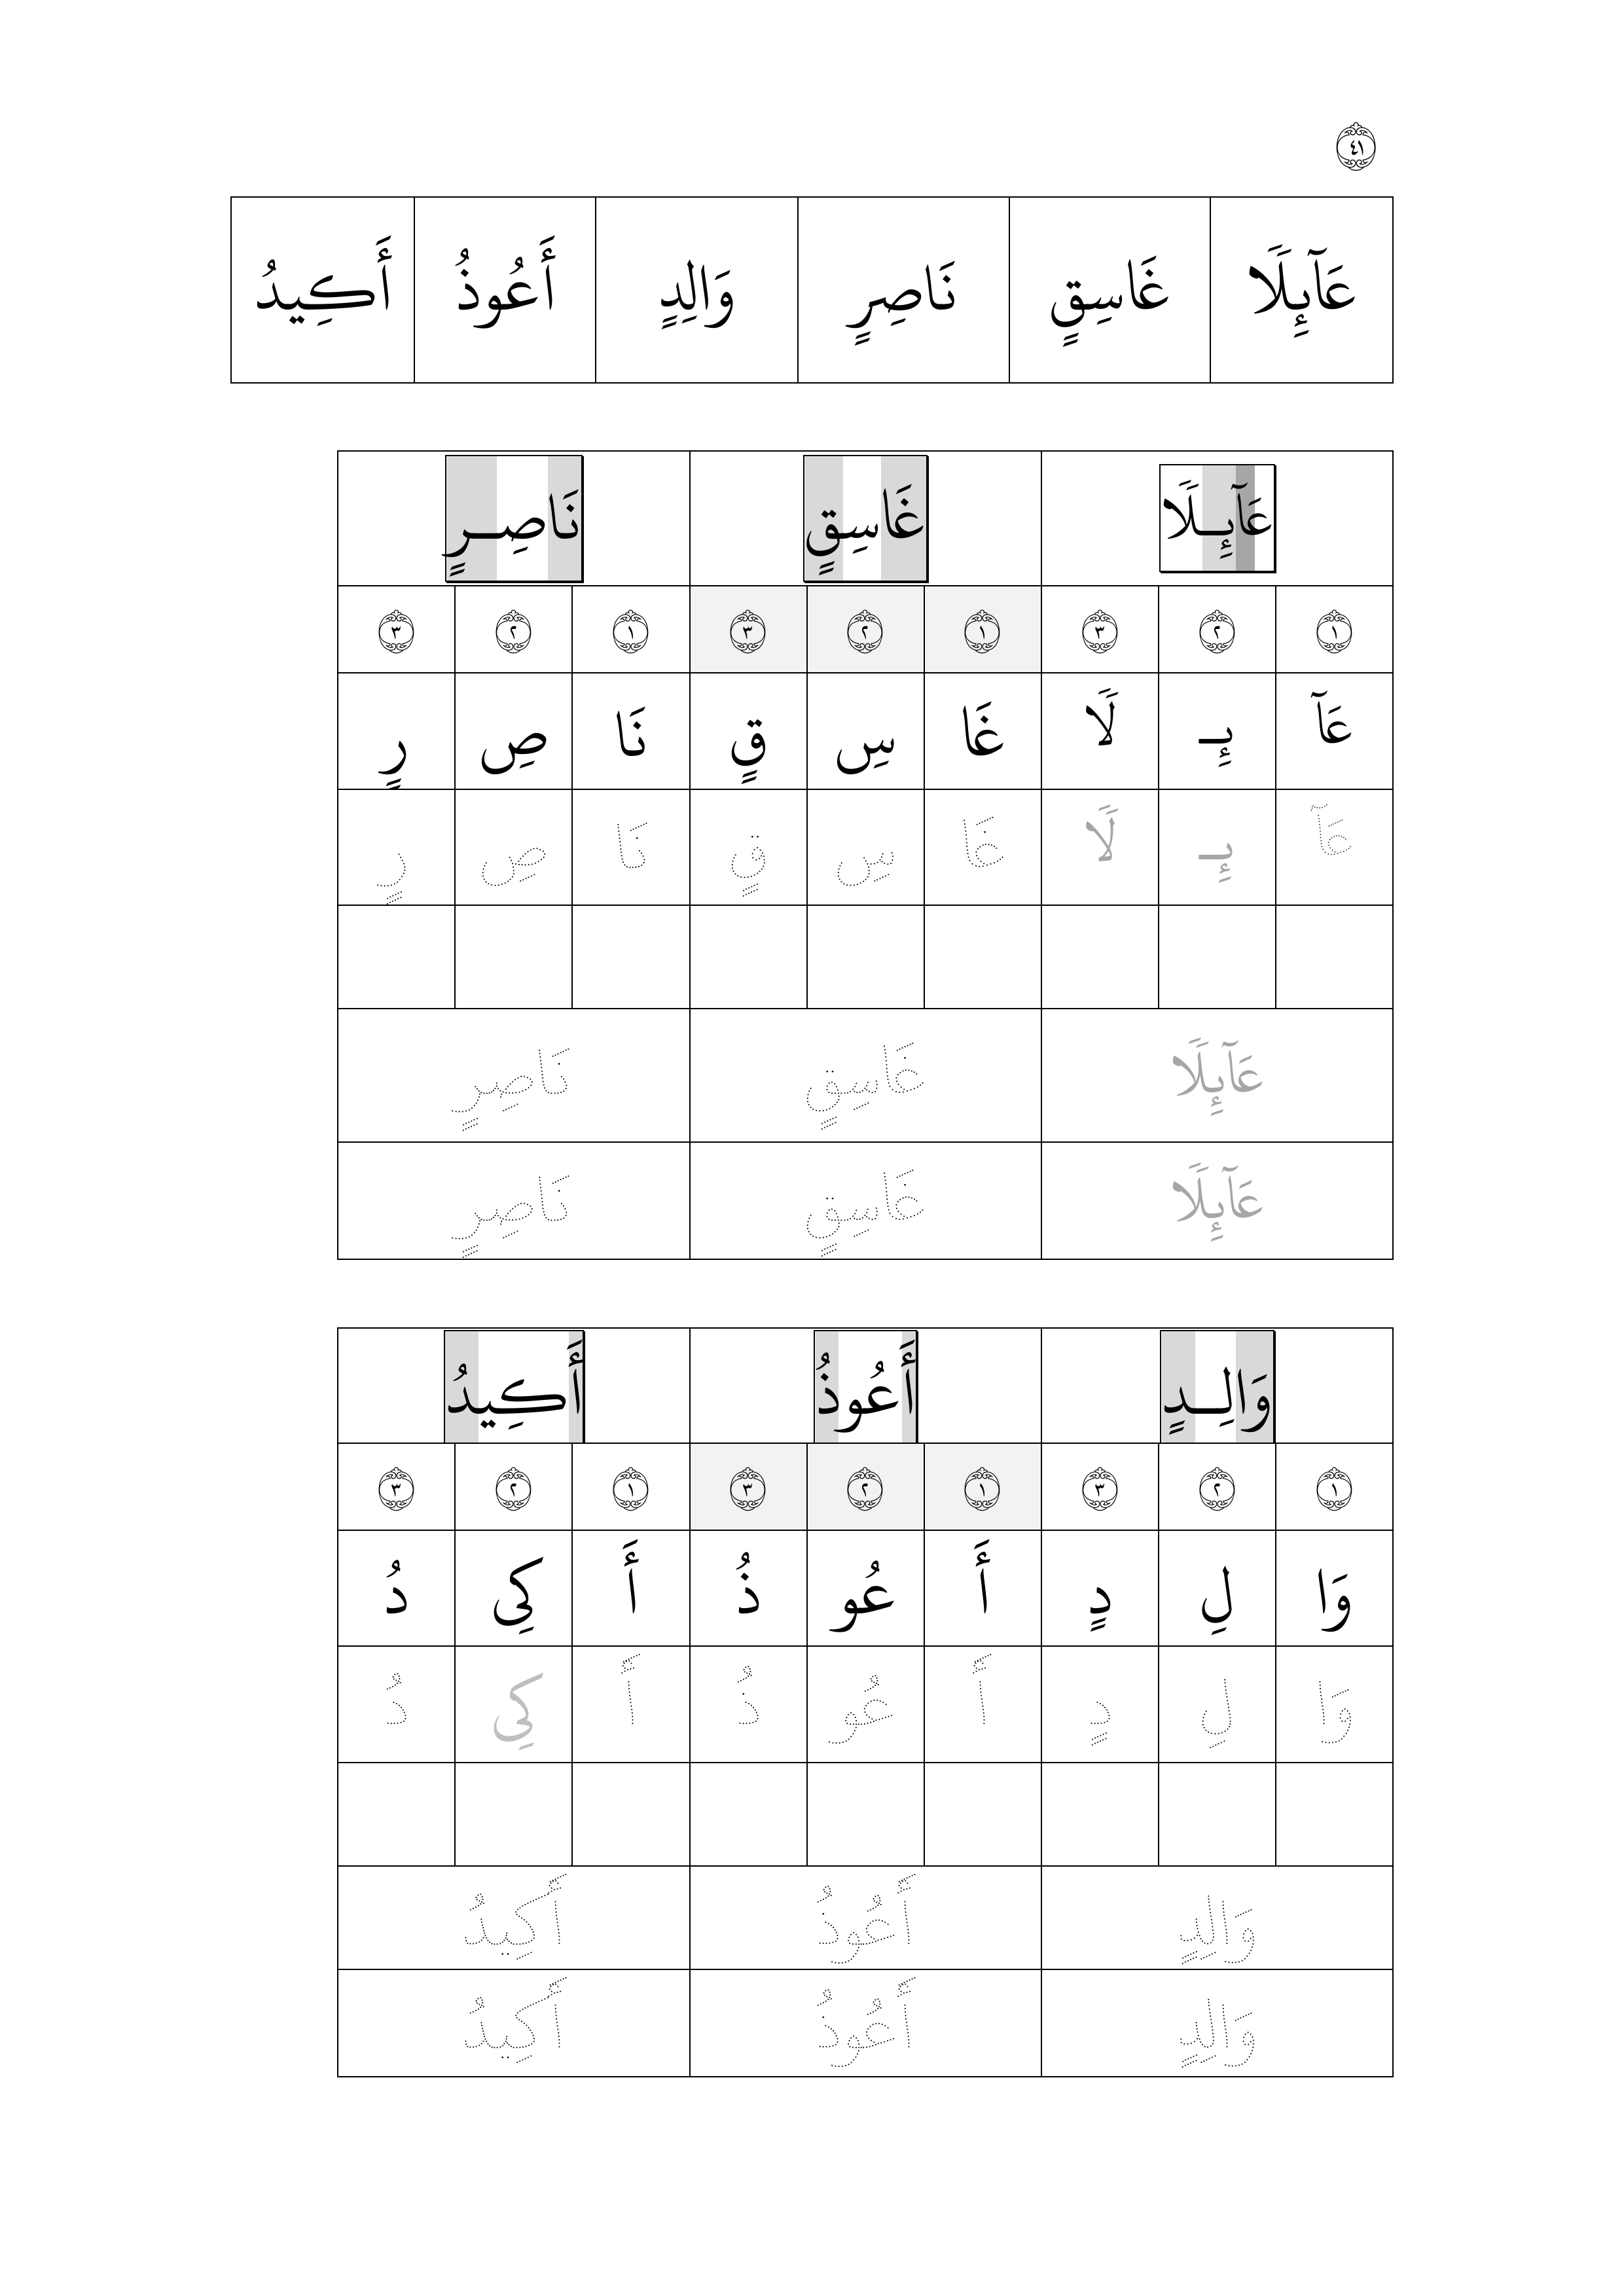 ٤١
عَآئِلًا غَاسِقٍ نَاصِرٍ وَالِدٍ أَعُوذُ أَكِيدُ
عَآئِـلًا غَاسِقٍ نَاصِـرٍ
١ ٢ ٣ ١ ٢ ٣ ١ ٢ ٣
عَآ ئِـ لًا غَا سِ قٍ نَا صِ رٍ
عَآ ئِـ لًا غَا سِ قٍ نَا صِ رٍ
عَآئِلًا غَاسِقٍ نَاصِرٍ
عَآئِلًا غَاسِقٍ نَاصِرٍ
وَالِـدٍ أَعُوذُ أَكِيدُ
١ ٢ ٣ ١ ٢ ٣ ١ ٢ ٣
وَا لِ دٍ أَ عُو ذُ أَ كِى دُ
وَا لِ دٍ أَ عُو ذُ أَ كِى دُ
وَالِدٍ أَعُوذُ أَكِيدُ
وَالِدٍ أَعُوذُ أَكِيدُ